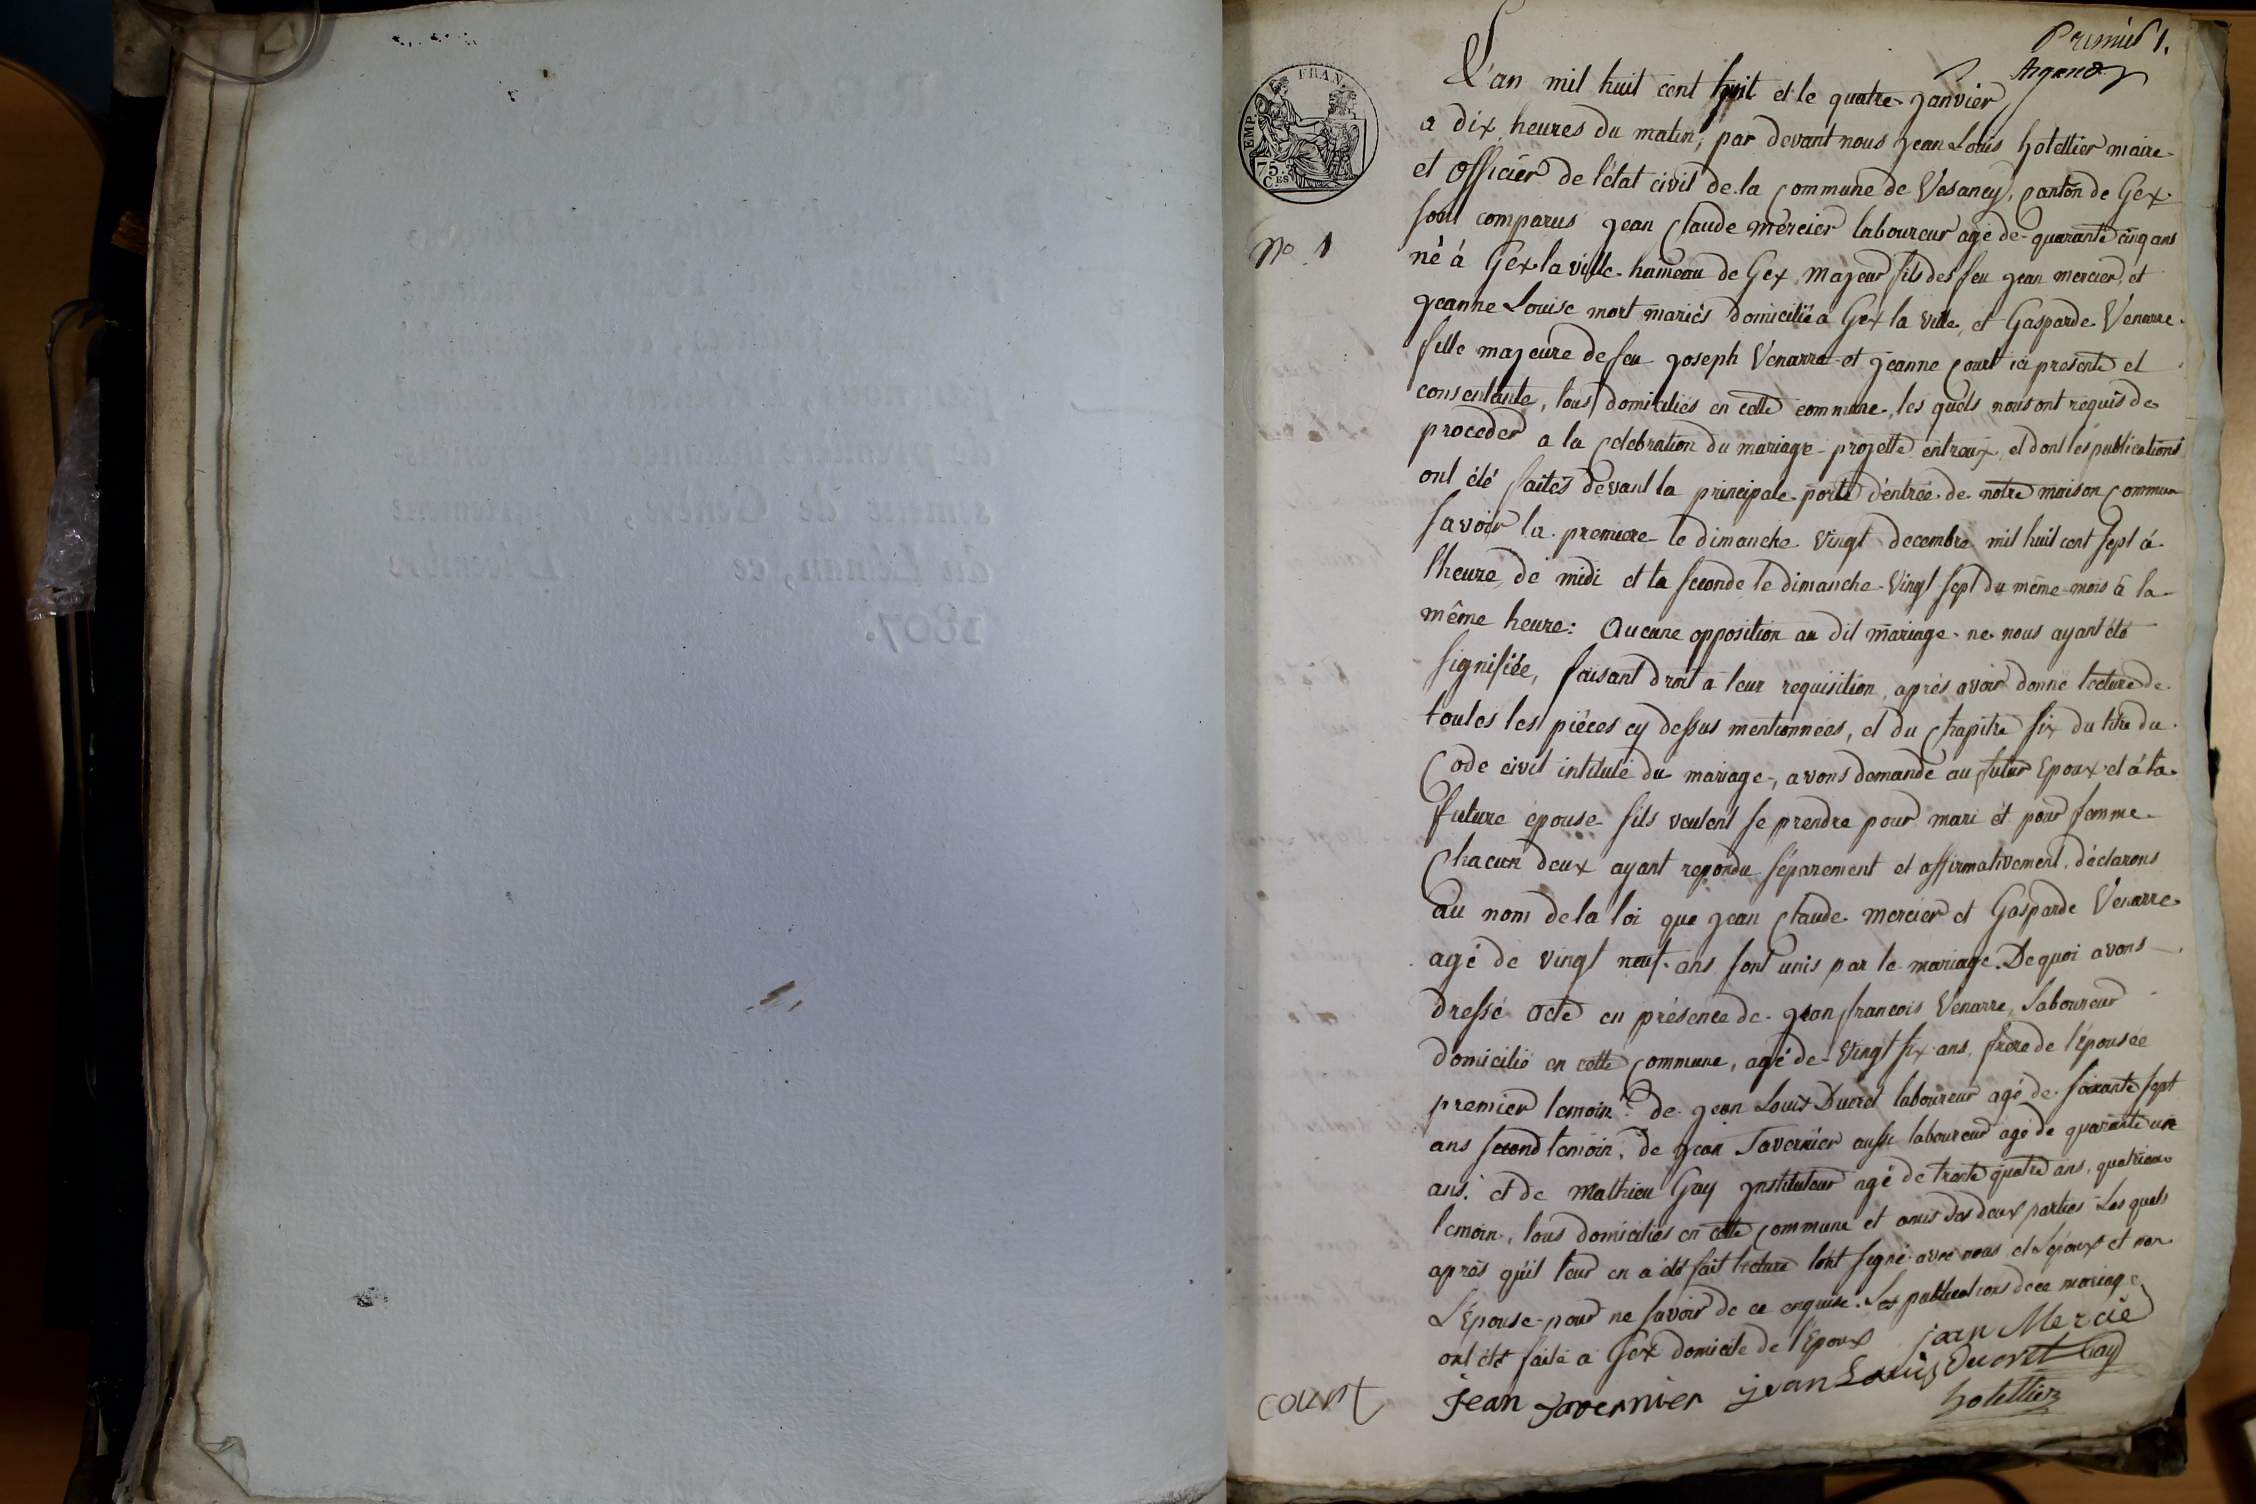 Premier 1.
Argand
L'an mil huit cent huit et le quatre janvier
a dix heures du matin, par devant nous jean Louis hotellier maire
et officier de l'état civil de la Commune de Vesancy, Canton de Gex.
EMP. FRAN.
75. CES
sont comparus jean Claude mercier laboureur agé de quarante cinq ans
No 1
né à Gex la ville hameau de Gex, majeur fils des feu jean mercier, et
jeanne Louise mort mariés domicilié a Gex la ville, et Gasparde Venarre
fille majeure de feu joseph Venarre et jeanne Court ici presente et
consentante, tous domiciliés en cette commune, les quels nous ont requis de
proceder a la Celebration du mariage projetté entreux, et dont les publications
ont été faites devant la principale porte d'entrée de notre maison Commun
savoir la premiere le dimanche vingt decembre mil huit cent sept à
l'heure de midi et la seconde le dimanche vingt sept du même mois à la
même heure: Aucune opposition au dit mariage ne nous ayant été
signifiée, faisant droit a leur requisition, après avoir donné lecture de
toutes les pièces cy dessus mentionnées, et du Chapitre six du titre du
Code civil intitulé du mariage, avons demandé au futur Epoux et à la
future epouse s'ils veulent se prendre pour mari et pour femme
Chacun deux ayant repondu séparement et affirmativement, déclarons
au nom de la loi que jean Claude mercier et Gasparde Venarre
agé de vingt neuf ans sont unis par le mariage. De quoi avons
dressé acte en présence de jean francois Venarre, laboureur
domicilié en cette Commune, agé de vingt six ans, frere de l'épousée
premier temoin: de jean Louis Ducret laboureur agé de soixante sept
ans second temoin, de jean Tavernier aussi laboureur agé de quarante un
ans, et de Mathieu Gay instituteur agé de trente quatre ans, quatrieme
temoin, tous domiciliés en cette Commune et amis des deux parties Les quels
après qu'il leur en a été fait lecture l'ont signé avec nous et l'époux et non
L'Epouse pour ne savoir de ce enquise. Les publications de ce mariage
ont été faite a Gex domicile de l'Epoux
jean Mercié
court jean Tavernier jean Louis Ducret Gay
hotellier
1807.